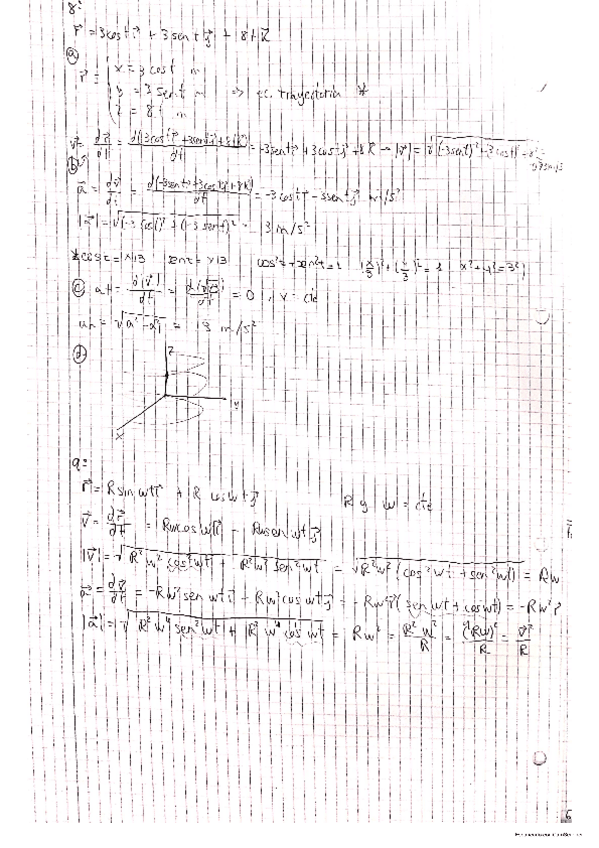 8:
r⃗ = 3cost i⃗ + 3sent j⃗ + 8t k⃗
ⓐ
x = 3cost m
r⃗ = y = 3sent m => ec. trayectoria *
z = 8t m
v⃗ = dr⃗/dt = d(3cost i⃗ + 3sent j⃗ + 8t k⃗)/dt = -3sent i⃗ + 3cost j⃗ + 8k⃗ → |v⃗| = √(-3sent)² + (3cost)² +
ⓑ
a⃗ = dv⃗/dt = d(-3sent i⃗ + 3cost j⃗ + 8k⃗)/dt = -3cost i⃗ - 3sent j⃗ m/s²
|a⃗| = √(-3cost)² + (-3sent)² = 3 m/s²
* cost = x/3 sent = y/3 cos²t + sen²t = 1 (x/3)² + (y/3)² = 1 x² + y² = 3²
ⓒ at = d|v⃗|/dt = = 0 , v = cte
an = √a² - at² = 3 m/s²
ⓓ
z
y
x
9:
r⃗ = R sin wt i⃗ + R cos wt j⃗ R y w = cte
v⃗ = dr⃗/dt = Rw cos wt i⃗ - Rw sen wt j⃗
|v⃗| = √R²w² cos²wt + R²w² sen²wt = √R²w² (cos²wt + sen²wt) = Rw
a⃗ = dv⃗/dt = -Rw² sen wt i⃗ - Rw² cos wt j⃗ = -Rw² (sen wt + cos wt) = -Rw²
|a⃗| = √R²w⁴ sen²wt + R²w⁴ cos²wt = Rw² = R²w²/R = (Rw)²/R = v²/R